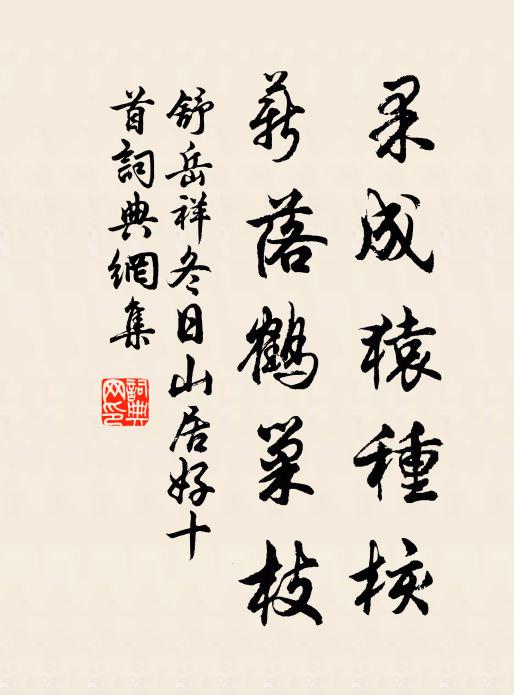 果成猿種核
薪落鶴巢枝
舒岳祥冬日山居好十
首詞典網集
詞典網印